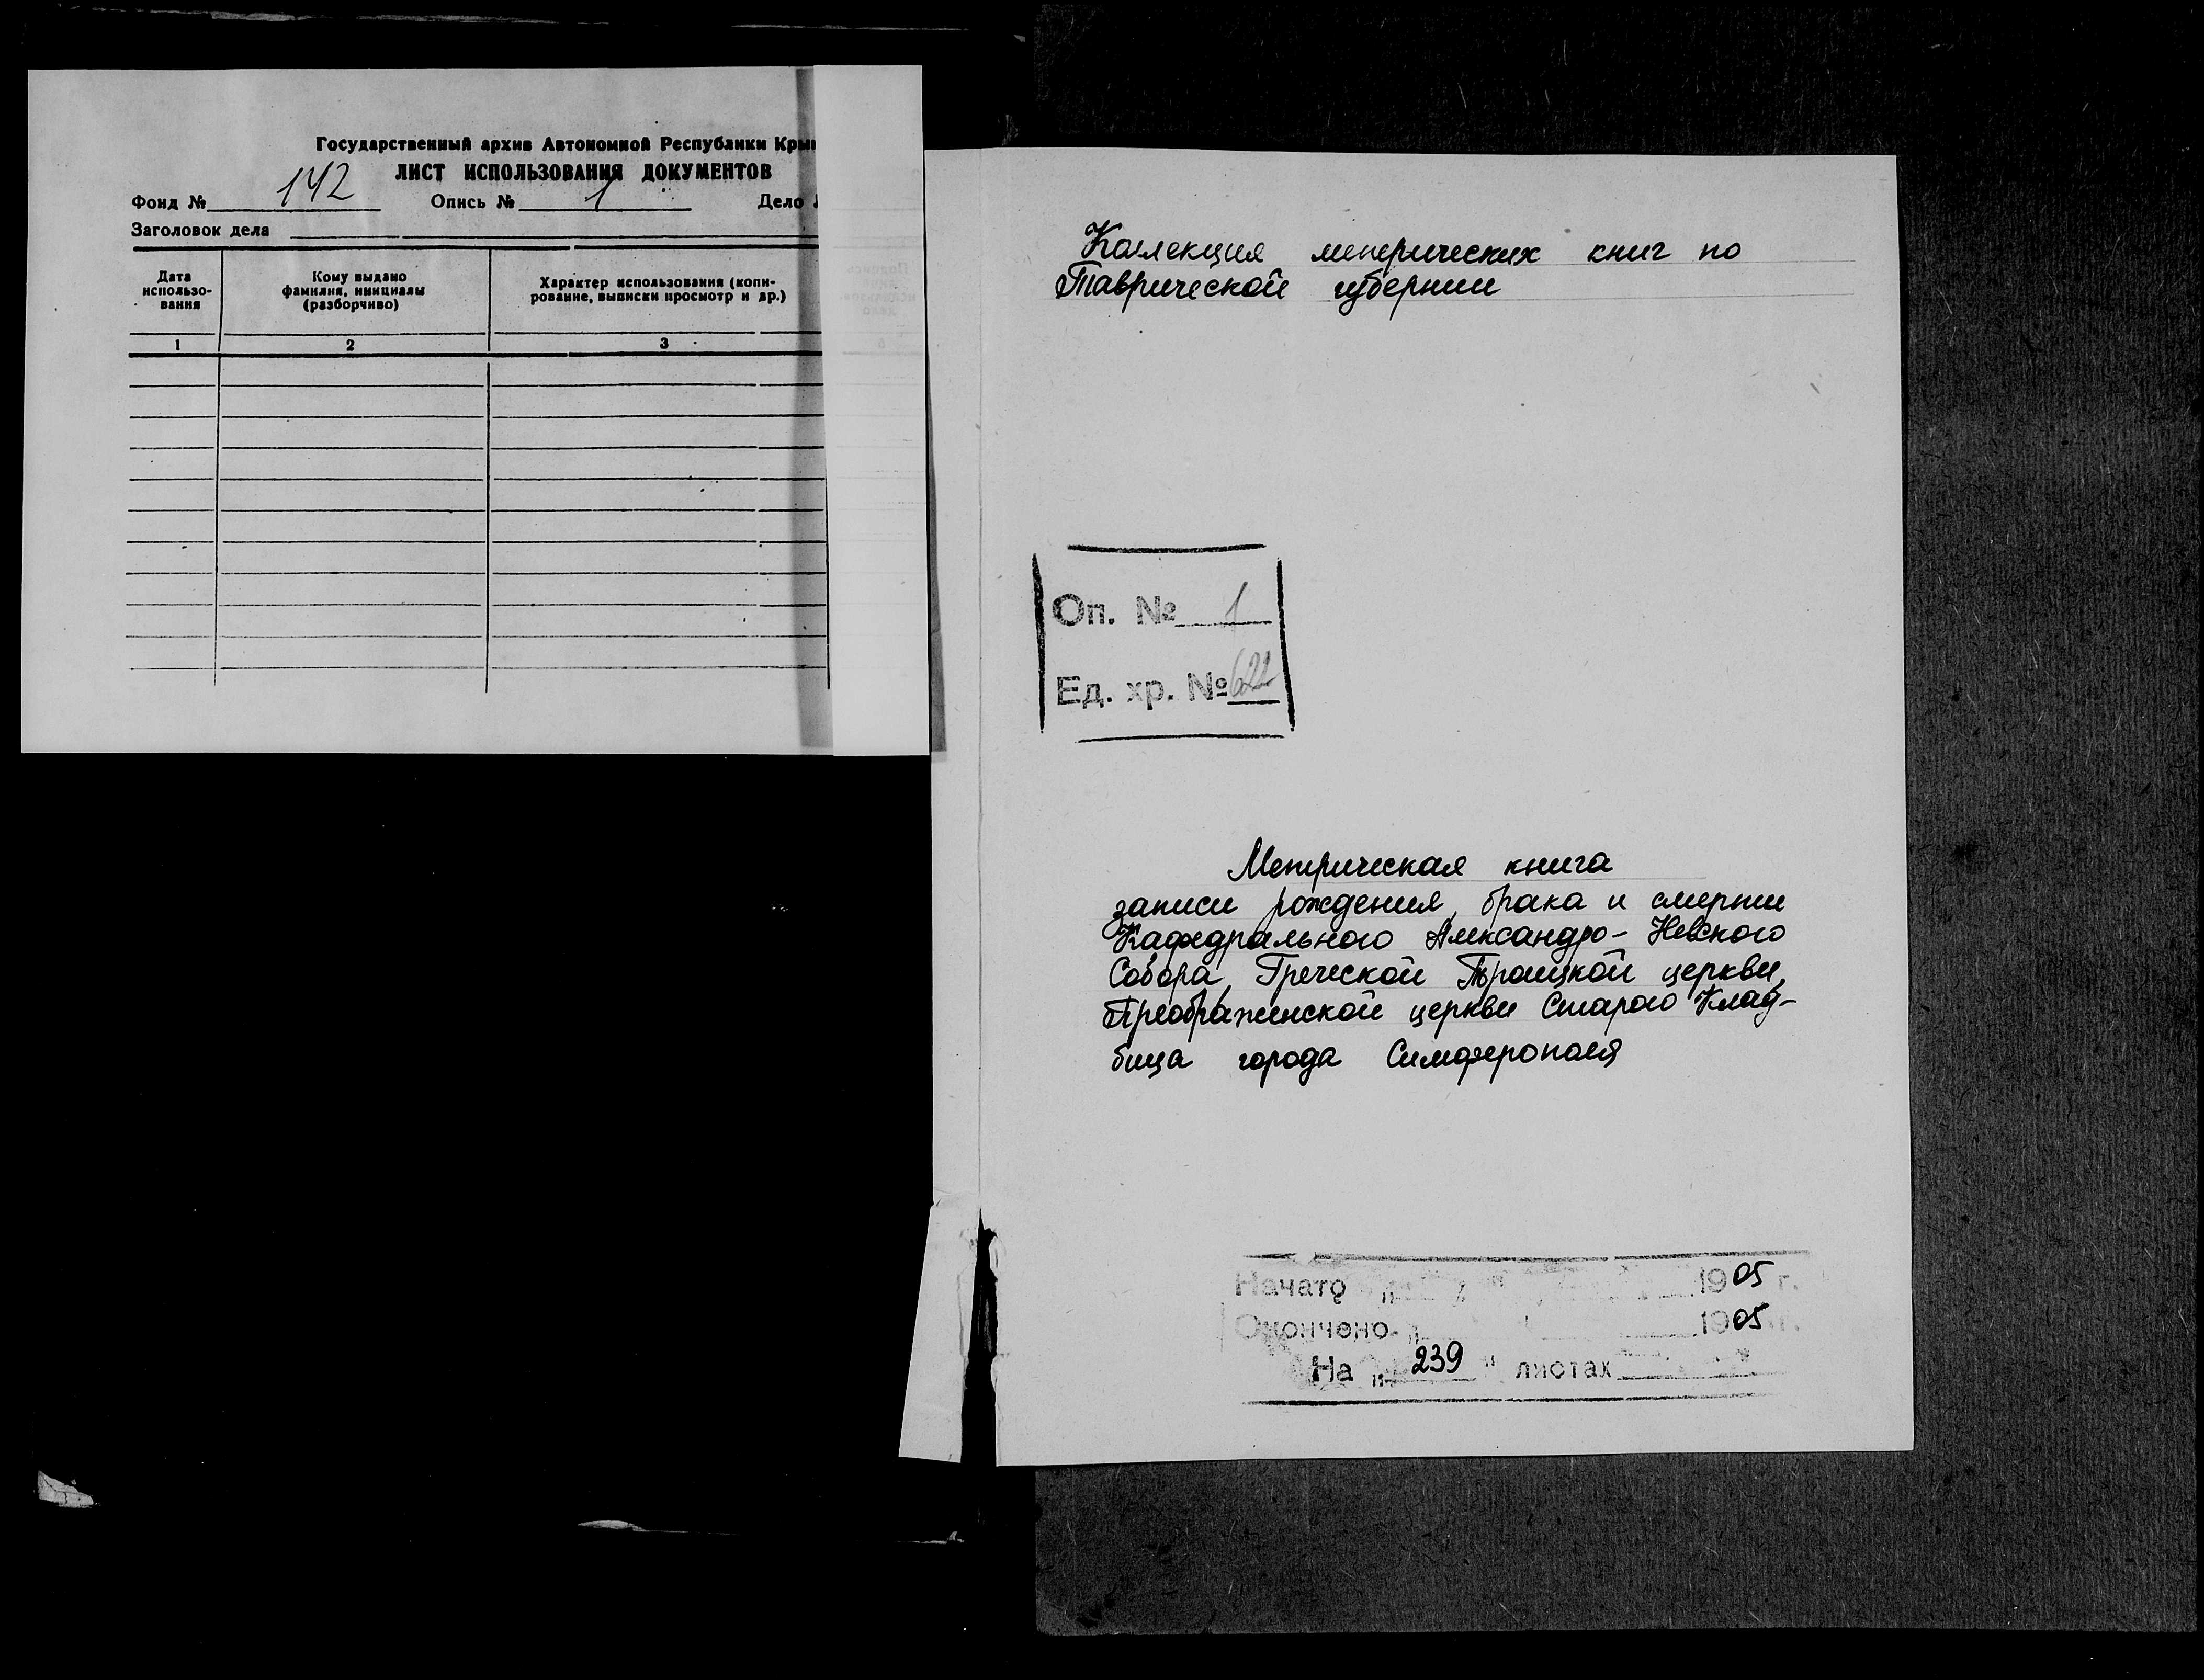 Государственный архив Автономной Республики Кры
ЛИСТ ИСПОЛЬЗОВАНИЯ ДОКУМЕНТОВ
Фонд № 142 Опись № 1 Дело
Заголовок дела
Дата использо-
вания
Кому выдано
фамилия, инициалы
(разборчиво)
Характер использования (копи-
рование, выписки просмотр и др.)
1 2 3
Коллекция метрических книг по
Таврической губернии
Оп. № 1
Ед. хр. № 622
Метрическая книга
записи рождения, брака и смерти
Кафедрального Александро-Невского
Собора, Греческой Троицкой церкви,
Преображенской церкви Старого Клад-
бища города Симферополя
Начато " " 1905 г.
Окончено " 1905 г.
На " 239 " листах